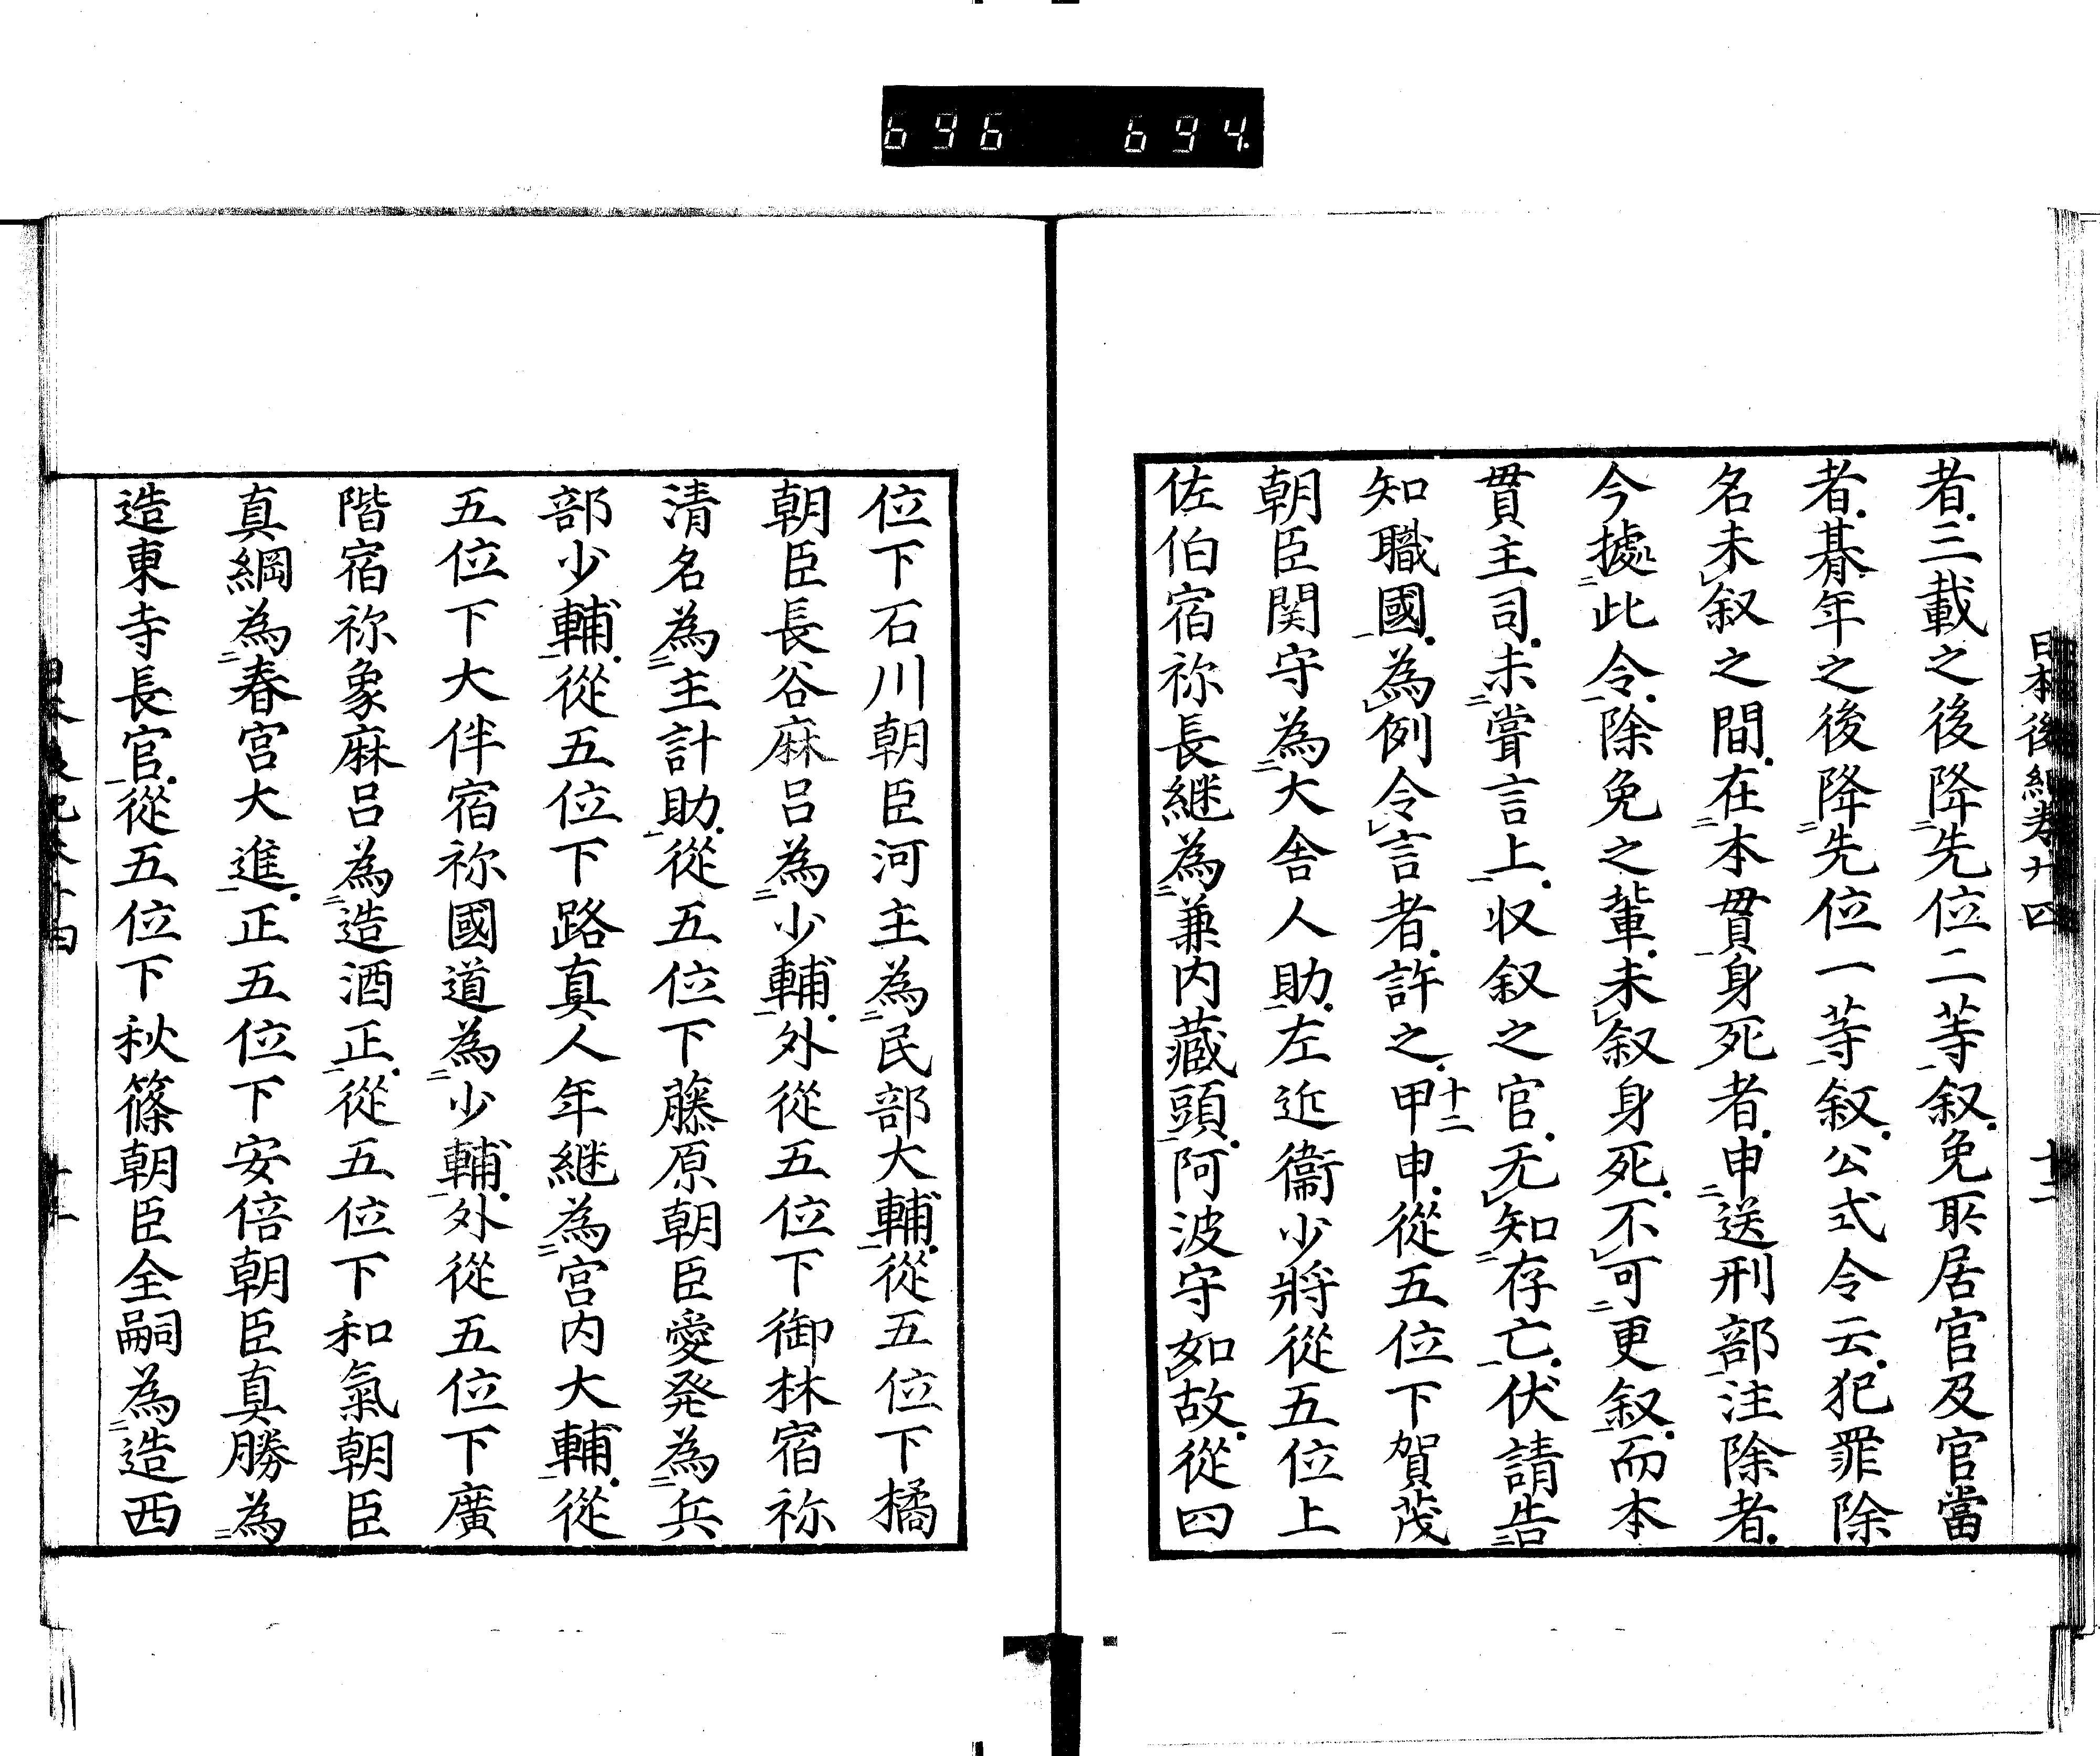 696 694.
日本後紀卷廿四 十二
者三載之後降先位二等叙免所居官及官當
者朞年之後降先位一等叙公式令云犯罪除
名未叙之間在本貫身死者申送刑部注除者
今據此令除免之輩未叙身死不可更叙而本
貫主司未甞言上収叙之官无知存亡伏請告
知職國為例令言者許之十二甲申從五位下賀茂
朝臣関守為大舍人助左近衞少將從五位上
佐伯宿祢長継為兼内藏頭阿波守如故從四
位下石川朝臣河主為民部大輔從五位下橘
朝臣長谷麻呂為少輔外從五位下御林宿祢
清名為主計助從五位下藤原朝臣愛発為兵
部少輔從五位下路真人年継為宮内大輔從
五位下大伴宿祢國道為少輔外從五位下廣
階宿祢象麻呂為造酒正從五位下和氣朝臣
真綱為春宮大進正五位下安倍朝臣真勝為
造東寺長官從五位下秋篠朝臣全嗣為造西